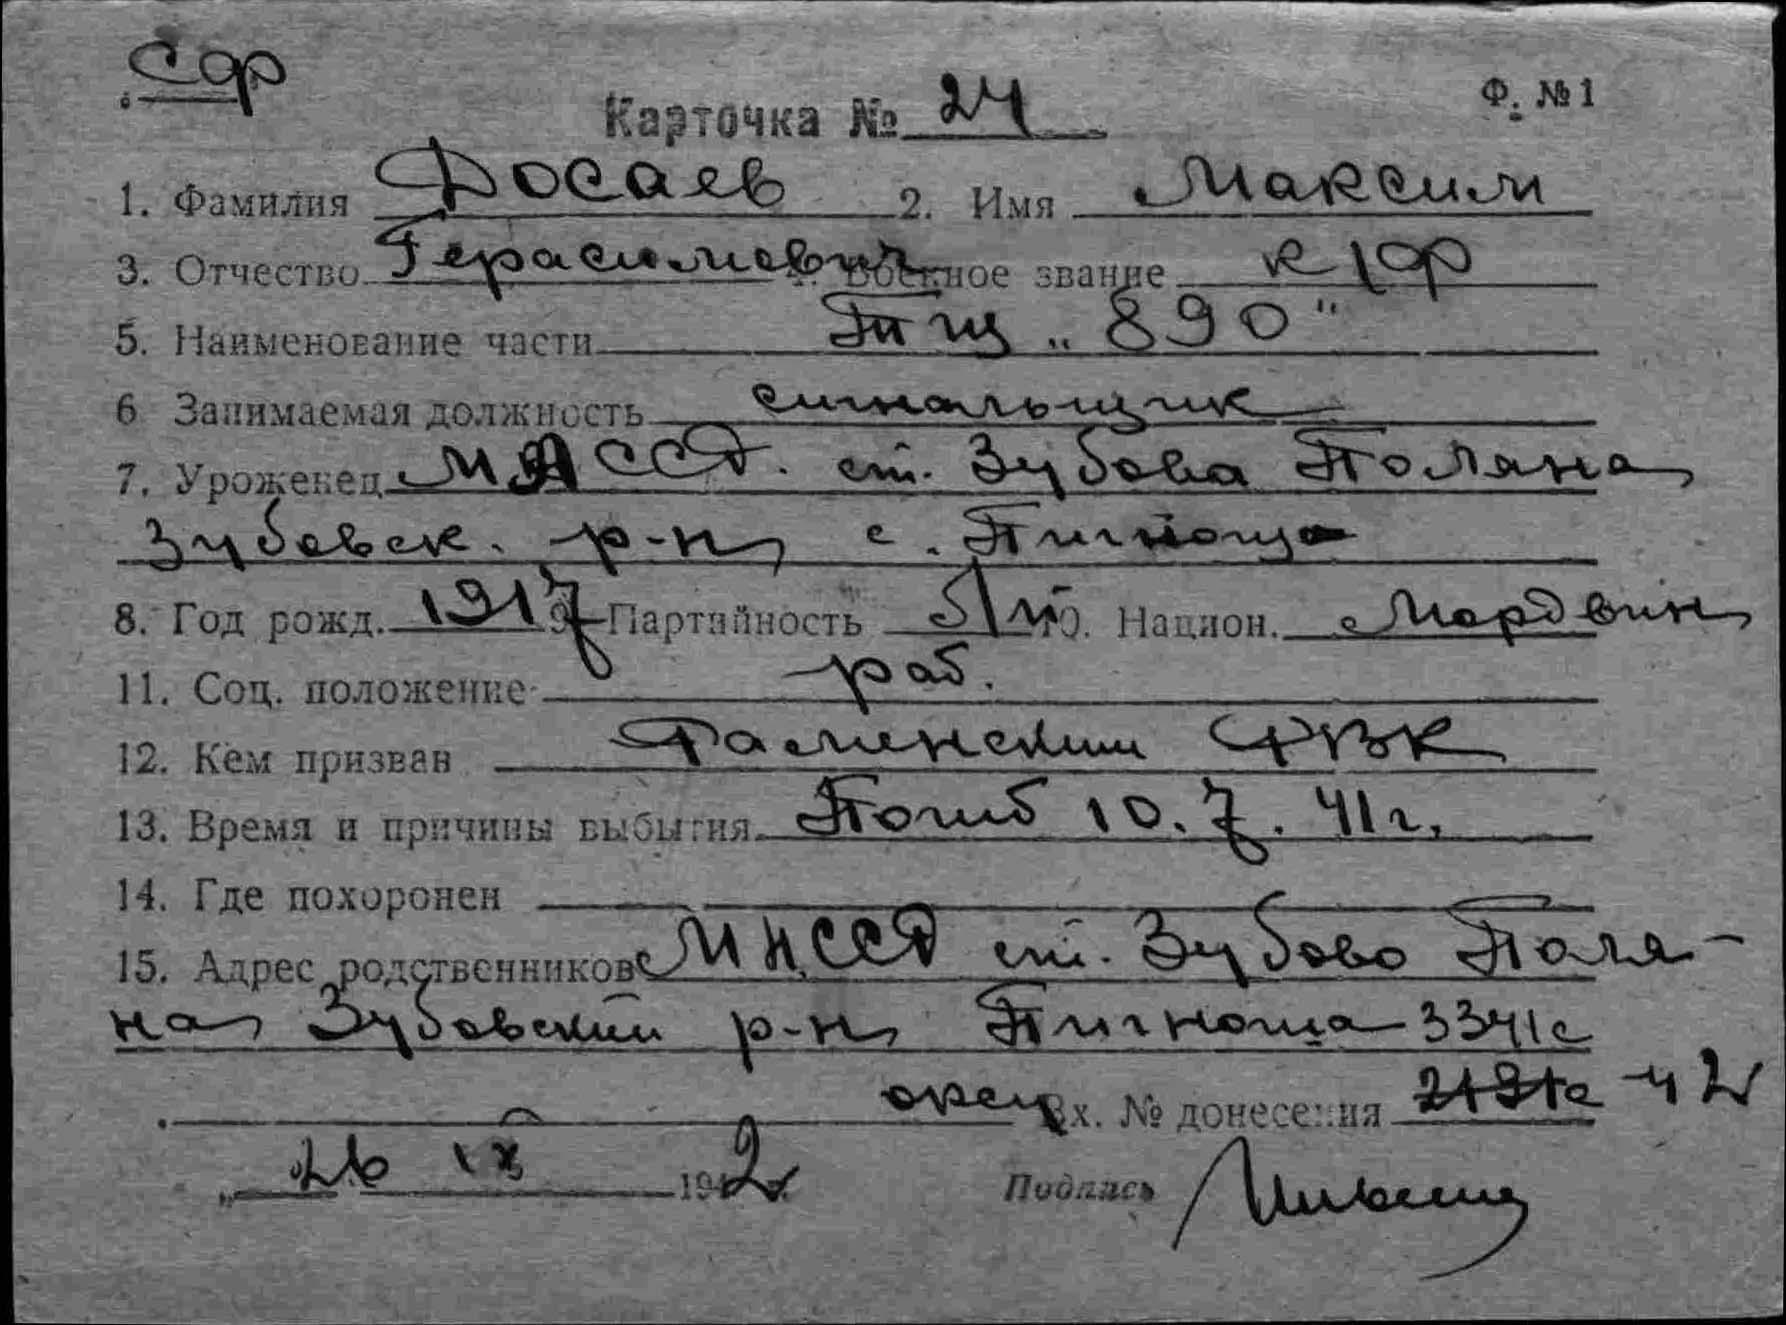 Сдр
Карточка № 24 Ф. № 1
1. Фамилия Досаев 2. Имя Максим
3. Отчество Герасимович Военное звание к/ф
5. Наименование части Тщ „890"
6 Занимаемая должность сигнальщик
7. Урожекец МАССР. ст. Зубова Поляна
Зубовск. р-н, с. Пигноша
8. Год рожд. 1917 9. Партийность б/п 10. Национ. Мордвин
11. Соц. положение раб.
12. Кем призван Раменским РВК
13. Время и причины выбытия Погиб 10.7.41г.
14. Где похоронен
15. Адрес родственников МАССР ст. Зубово Поля-
на, Зубовский р-н, Пигноша 3341с
Вх. № донесения 42
„26 IX 1942
Подпись